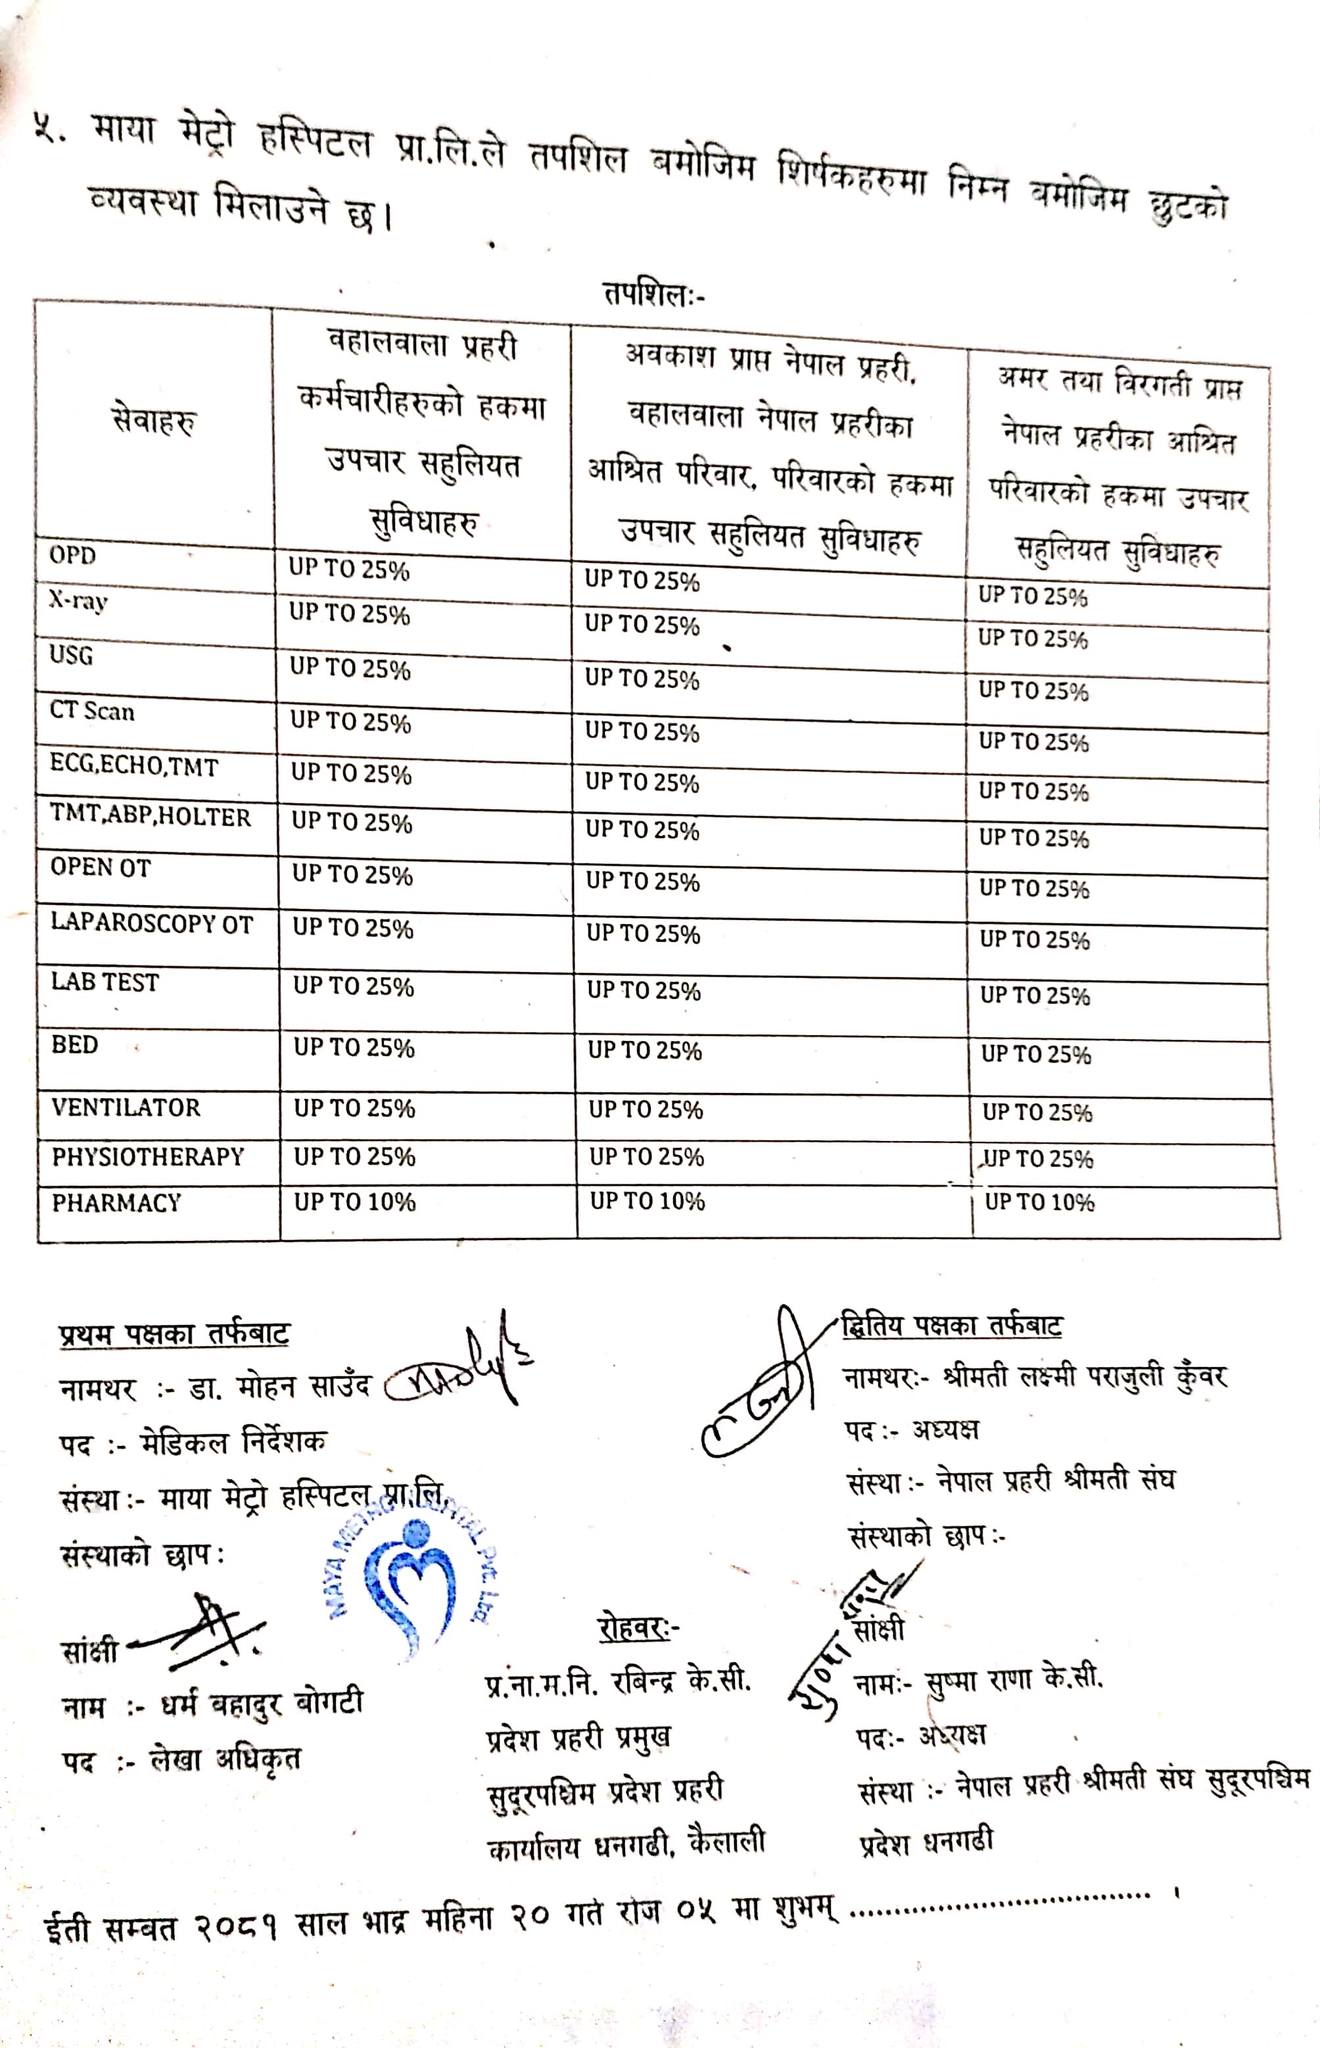 ५. माया मेट्रो हस्पिटल प्रा.लि.ले तपशिल बमोजिम शिर्षकहरुमा निम्न बमोजिम छुटको
व्यवस्था मिलाउने छ।
तपशिलः-
सेवाहरु
वहालवाला प्रहरी
कर्मचारीहरुको हकमा
उपचार सहुलियत
सुविधाहरु
अवकाश प्राप्त नेपाल प्रहरी,
वहालवाला नेपाल प्रहरीका
आश्रित परिवार, परिवारको हकमा
उपचार सहुलियत सुविधाहरु
अमर तथा विरगती प्राप्त
नेपाल प्रहरीका आश्रित
परिवारको हकमा उपचार
सहुलियत सुविधाहरु
OPD UP TO 25% UP TO 25% UP TO 25%
X-ray UP TO 25% UP TO 25% UP TO 25%
USG UP TO 25% UP TO 25% UP TO 25%
CT Scan UP TO 25% UP TO 25% UP TO 25%
ECG,ECHO,TMT UP TO 25% UP TO 25% UP TO 25%
TMT,ABP,HOLTER UP TO 25% UP TO 25% UP TO 25%
OPEN OT UP TO 25% UP TO 25% UP TO 25%
LAPAROSCOPY OT UP TO 25% UP TO 25% UP TO 25%
LAB TEST UP TO 25% UP TO 25% UP TO 25%
BED UP TO 25% UP TO 25% UP TO 25%
VENTILATOR UP TO 25% UP TO 25% UP TO 25%
PHYSIOTHERAPY UP TO 25% UP TO 25% UP TO 25%
PHARMACY UP TO 10% UP TO 10% UP TO 10%
प्रथम पक्षका तर्फबाट
नामथर :- डा. मोहन साउँद
पद :- मेडिकल निर्देशक
संस्था :- माया मेट्रो हस्पिटल प्रा.लि.
संस्थाको छाप :
MAYA METRO HOSPITAL Pvt. Ltd.
सांक्षी
नाम :- धर्म बहादुर बोगटी
पद :- लेखा अधिकृत
रोहवरः-
प्र.ना.म.नि. रबिन्द्र के.सी.
प्रदेश प्रहरी प्रमुख
सुदूरपश्चिम प्रदेश प्रहरी
कार्यालय धनगढी, कैलाली
द्धितिय पक्षका तर्फबाट
नामथरः- श्रीमती लक्ष्मी पराजुली कुँवर
पद :- अध्यक्ष
संस्था :- नेपाल प्रहरी श्रीमती संघ
संस्थाको छाप :-
सांक्षी
नामः- सुष्मा राणा के.सी.
पदः- अध्यक्ष
संस्था :- नेपाल प्रहरी श्रीमती संघ सुदूरपश्चिम
प्रदेश धनगढी
ईती सम्बत २०८१ साल भाद्र महिना २० गते रोज ०५ मा शुभम् ................................ ।